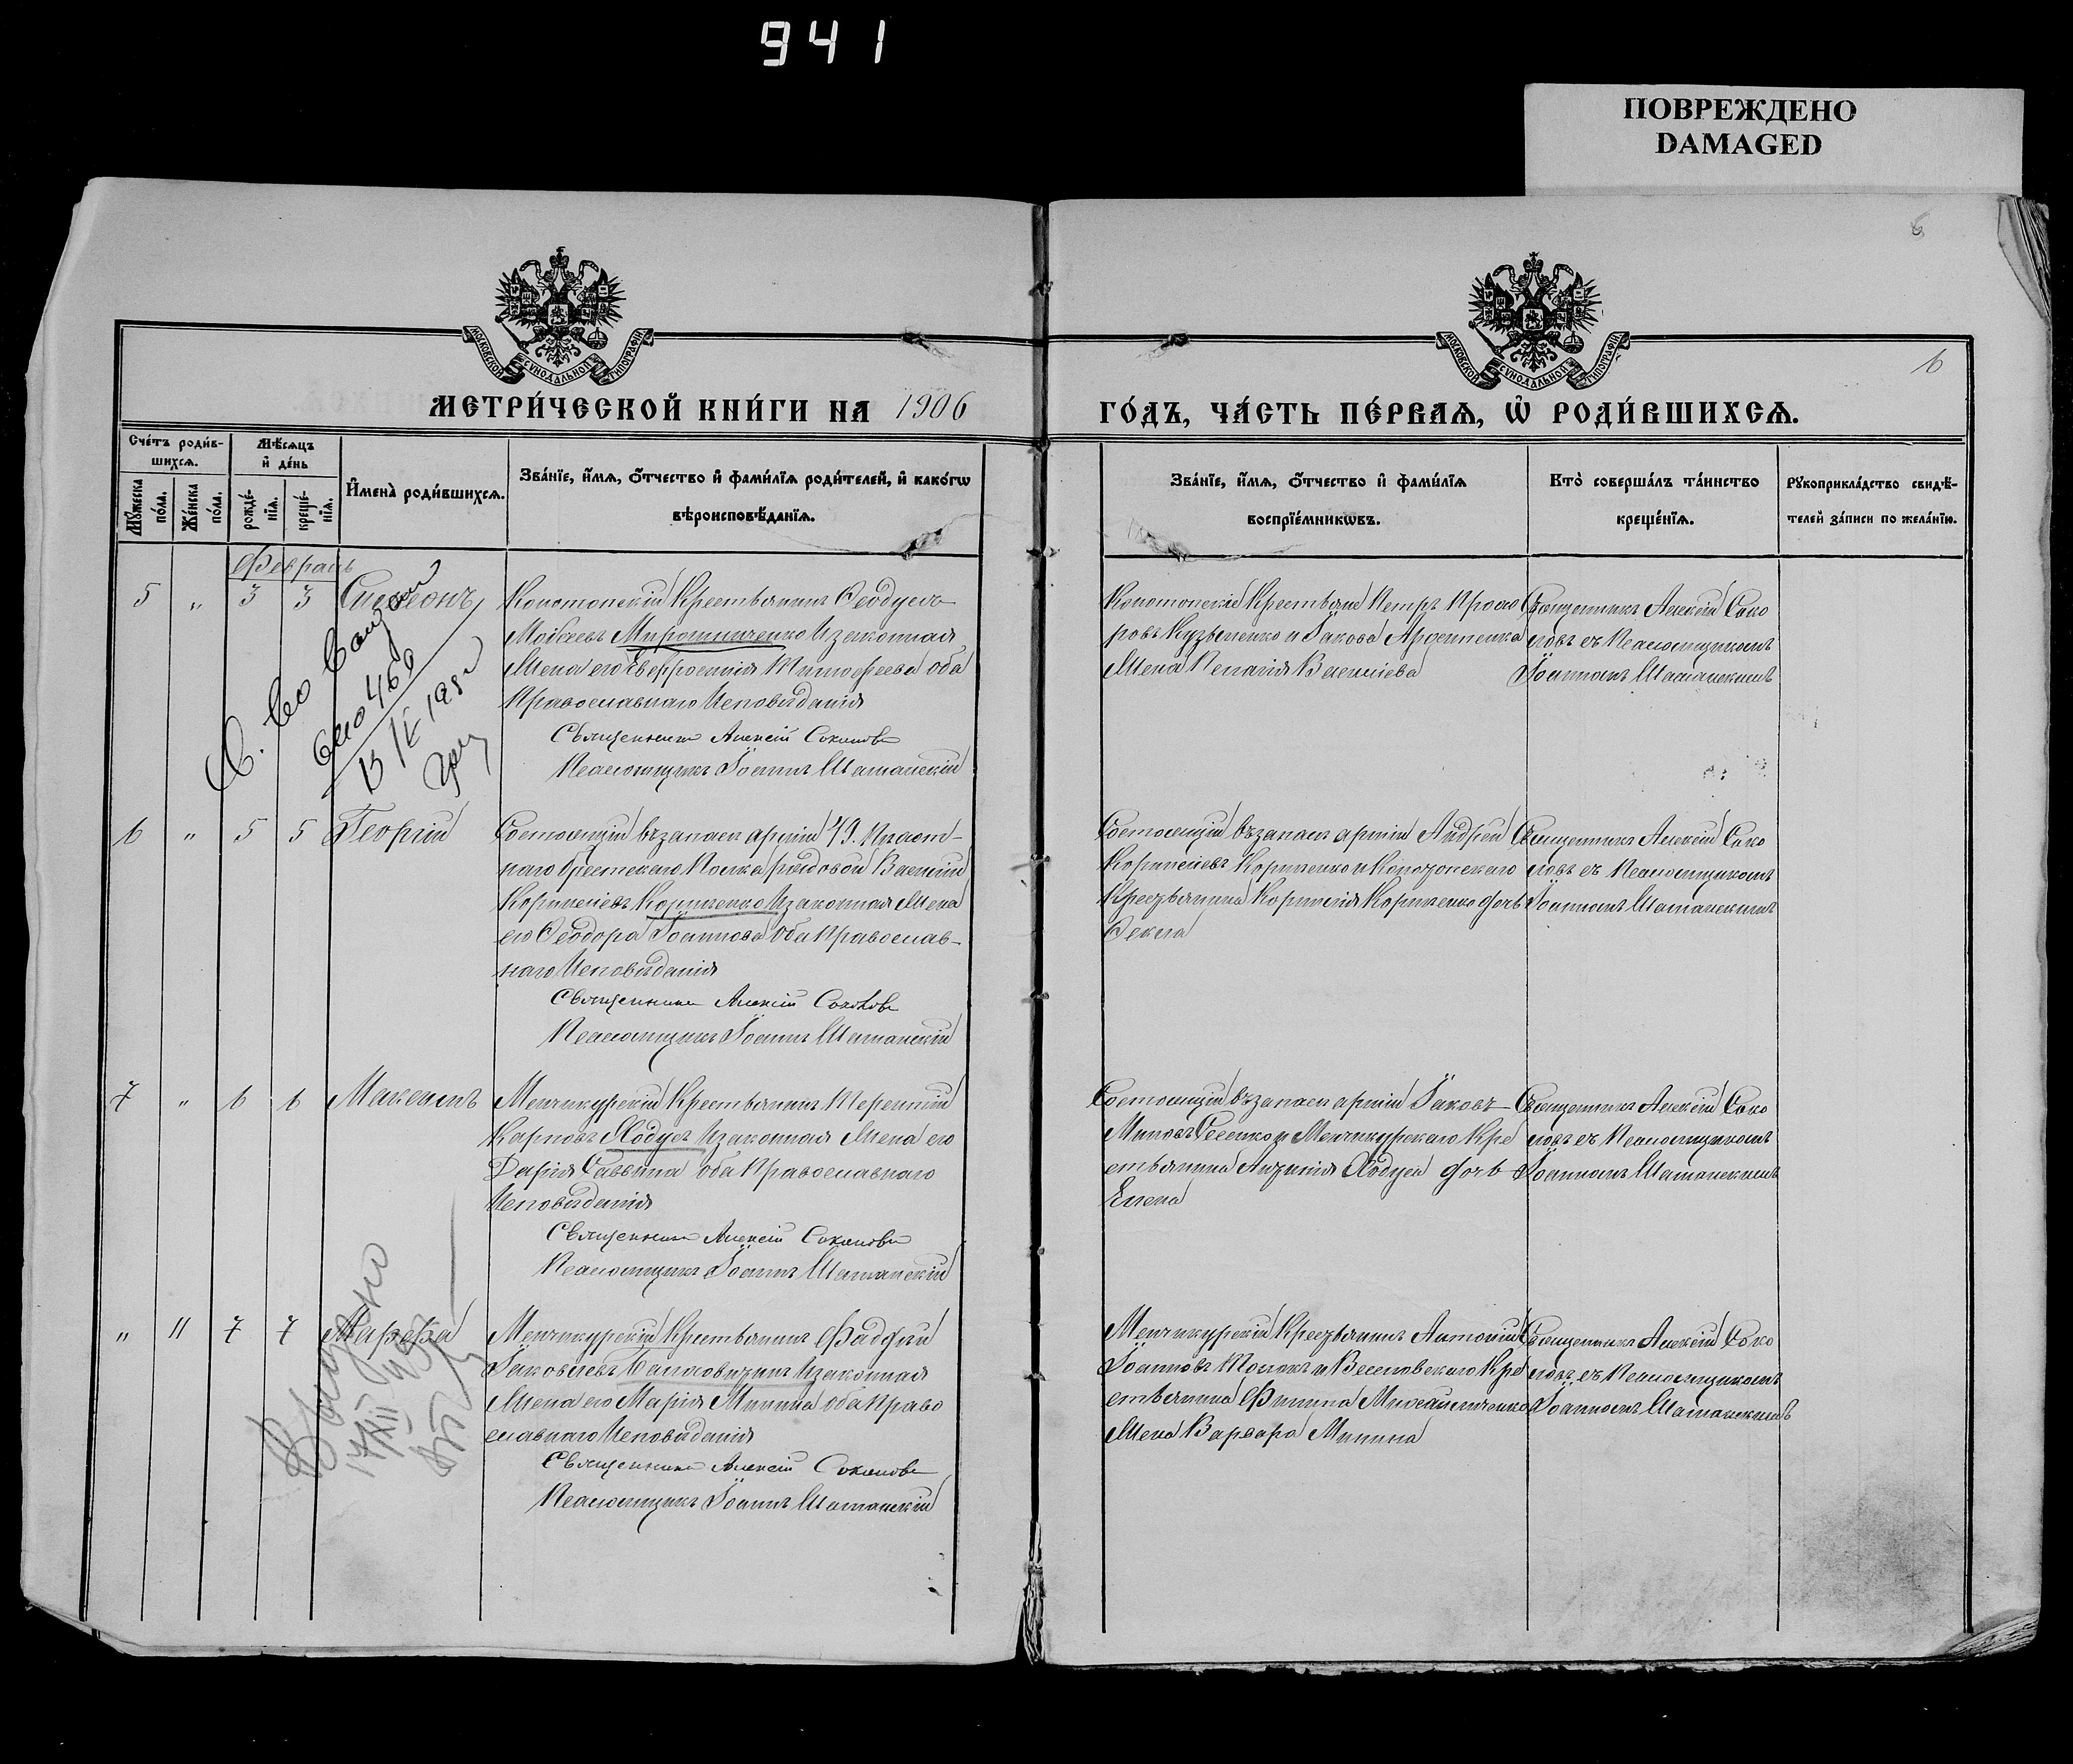 941
ПОВРЕЖДЕНО
DAMAGED
6
МОСКОВСКОЙ СѴНОДАЛЬНОЙ ТИПОГРАФІИ
МОСКОВСКОЙ СѴНОДАЛЬНОЙ ТИПОГРАФІИ
6
МЕТРИ́ЧЕСКОЙ КНИ́ГИ НА 1906
ГО́ДЪ, ЧА́СТЬ ПЕ́РВАѦ, Ѡ҆ РОДИ́ВШИХСѦ.
Сче́тъ роди́в-
шихсѧ.
Мѣ́сѧцъ
и҆ де́нь
Мꙋ́жеска по́ла.
Же́нска по́ла.
рожде́-нїѧ.
креще́-нїѧ.
И҆мена̀ роди́вшихсѧ.
Зва́нїе, и҆́мѧ, ѻ҆́тчество и҆ фами́лїѧ роди́телей, и҆ како́гѡ
вѣроисповѣ́данїѧ.
Зва́нїе, и҆́мѧ, ѻ҆́тчество и҆ фами́лїѧ
воспрїе́мникѡвъ.
Кто̀ соверша́лъ та́инство
креще́нїѧ.
Рꙋкоприкла́дство свидѣ́-
телей за́писи по жела́нїю.
Февраль
5 " 3 3 Симеонъ
Конотопскій Крестьянинъ Ѳеодусъ
Мойсеевъ Мирошниченко И законная
Жена его Евфросинія Тимофеева оба
Православнаго Исповѣданія
Священникъ Алексій Соколовъ
Псаломщикъ Іоаннъ Шатанскій
Конотопскіе Крестьяне Петръ Проко
ровъ Кузьменко и Іакова Артеменка
Жена Пелагія Василіева
Священникъ Алексій Соко
ловъ съ Псаломщикомъ
Іоанномъ Шатанскимъ
6 " 5 5 Георгій
Состоящій въ запасѣ арміи 49. Пѣхот-
наго Брестскаго Полка рядовой Василій
Корниліевъ Корниенко И законная Жена
его Ѳеодора Іоаннова Оба Православ-
наго Исповѣданія
Священникъ Алексій Соколовъ
Псаломщикъ Іоаннъ Шатанскій
Состоящій въ запасѣ арміи Андрей
Корнилиевъ Корниенко и Конотопскаго
Крестьянина Корнилія Корниенко дочь
Ѳекла
Священникъ Алексій Соко
ловъ съ Псаломщикомъ
Іоанномъ Шатанскимъ
7 " 6 6 Максимъ
Менчикурскій Крестьянинъ Терентій
Карповъ Лодусъ И законная Жена его
Дарія Саввина оба Православнаго
Исповѣданія
Священникъ Алексій Соколовъ
Псаломщикъ Іоаннъ Шатанскій
Состоящій въ запасѣ арміи Іаковъ
Менчикурскаго Кре
стьянина дочь
Елена
Священникъ Алексій Соко
ловъ съ Псаломщикомъ
Іоанномъ Шатанскимъ
" 11 7 7 Марфа
Менчикурскій Крестьянинъ Фаддей
Іаковлевъ И законная
Жена его Марія Минина оба Право
славнаго Исповѣданія
Священникъ Алексій Соколовъ
Псаломщикъ Іоаннъ Шатанскій
Менчикурскій Крестьянинъ Антоній
Іоанновъ и Веселовскаго Кре
стьянина Филиппа
Жена Варвара Минина
Священникъ Алексій Соко
ловъ съ Псаломщикомъ
Іоанномъ Шатанскимъ